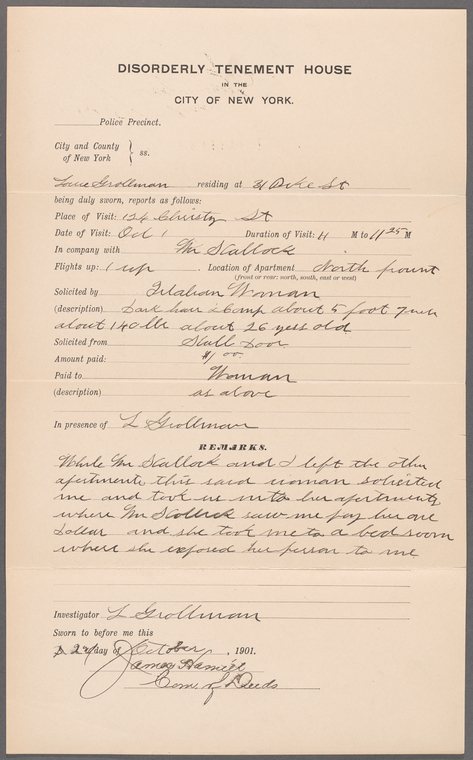 DISORDERLY TENEMENT HOUSE
IN THE
CITY OF NEW YORK.
Police Precinct.
City and County
of New York } ss.
Louie Grollman residing at 31 Pike St
being duly sworn, reports as follows:
Place of Visit: 124 Christy St
Date of Visit: Oct 1 Duration of Visit: 11 M to 11 25 M
In company with Mr Scallock
Flights up: 1 up Location of Apartment North frount
(front or rear: north, south, east or west)
Solicited by Itlahan Woman
(description) Dark hair & about 5 foot 7 inch
about 140 lbs about 26 yers old
Solicited from Hall Door
Amount paid: $1 00
Paid to Woman
(description) as above
In presence of L Grollman
REMARKS.
While Mr Scallock and I left the other
apertments this said woman solicited
me and took us into her apertments
where Mr Scallock saw me pay her one
Dollar and she took me to a bed room
where she exposed her person to me
Investigator L Grollman
Sworn to before me this
24 day of October, 1901.
James Hamill
Com. of Deeds